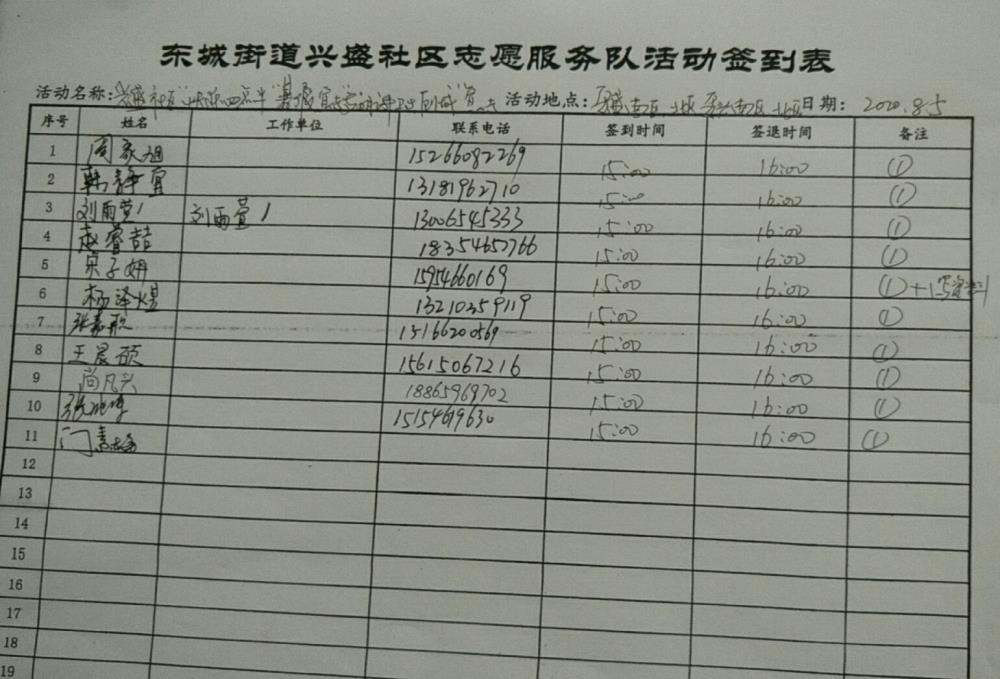 东城街道兴盛社区志愿服务队活动签到表
活动名称: 活动地点: 日期: 2020.8.5
序号 姓名 工作单位 联系电话 签到时间 签退时间 备注
1 周家旭 15266082269 15:00 16:00 ①
2 韩静宜 13181962710 15:00 16:00 ①
3 刘雨萱1 刘雨萱1 13006545333 15:00 16:00 ①
4 赵睿喆 18354657766 15:00 16:00 ①
5 宋子妍 15954660169 15:00 16:00 ①+写资料
6 杨泽煜 13210359119 15:00 16:00 ①
7 张嘉航 15166200569 15:00 16:00 ①
8 王晨硕 15615067216 15:00 16:00 ①
9 尚凡兴 18865969702 15:00 16:00 ①
10 张 15154619630 15:00 16:00 ①
11 门 15:00 16:00 ①
12
13
14
15
16
17
18
19